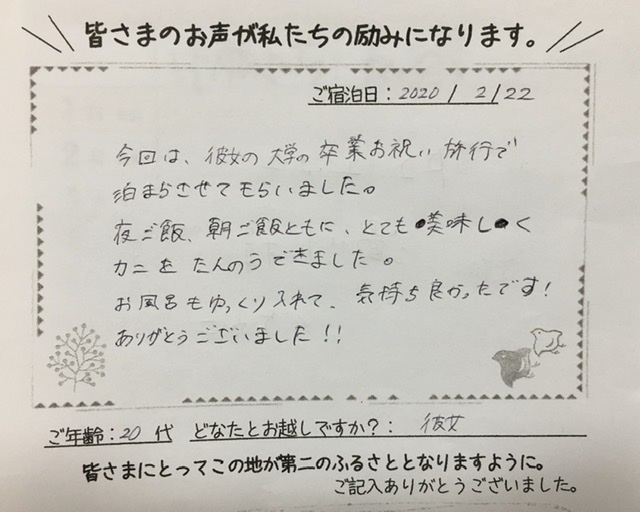 皆さまのお声が私たちの励みになります。
ご宿泊日：2020 / 2/22
今回は、彼女の大学の卒業お祝い旅行で
泊まらさせてもらいました。
夜ご飯、朝ご飯ともに、とても美味しく
カニをたんのうできました。
お風呂もゆっくり入れて、気持ち良かったです!
ありがとうございました!!
ご年齢：20 代 どなたとお越しですか?： 彼女
皆さまにとってこの地が第二のふるさととなりますように。
ご記入ありがとうございました。